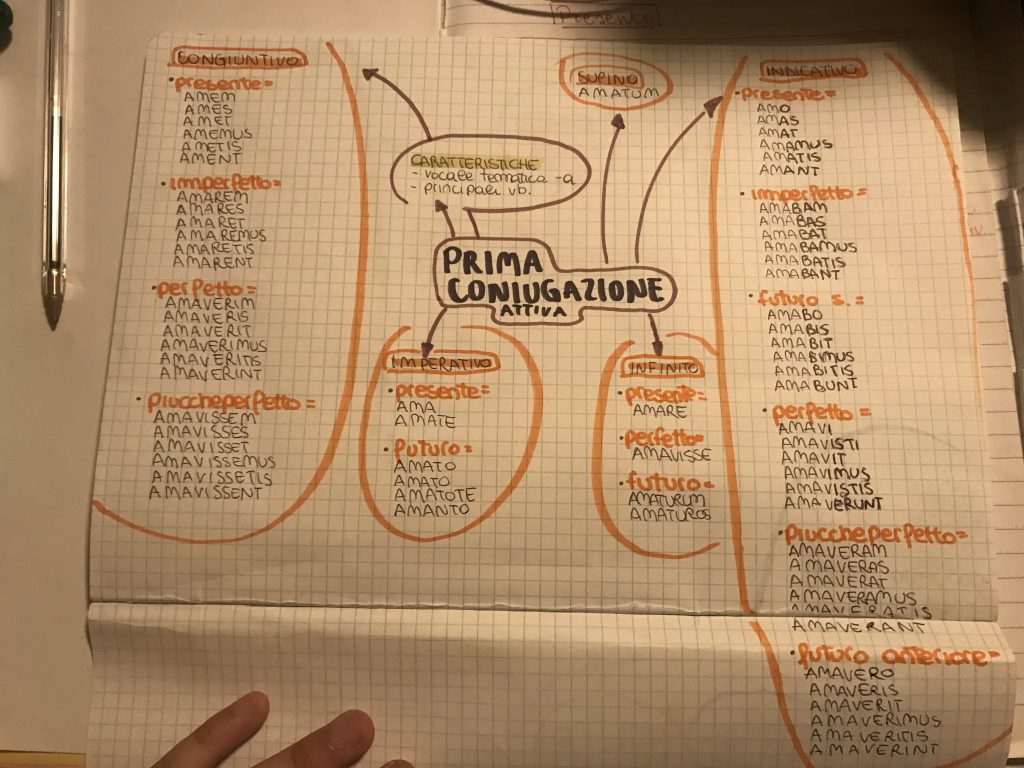 Presente
CONGIUNTIVO
• presente =
AMEM
AMES
AMET
AMEMUS
AMETIS
AMENT
• imperfetto =
AMAREM
AMARES
AMARET
AMAREMUS
AMARETIS
AMARENT
• perfetto =
AMAVERIM
AMAVERIS
AMAVERIT
AMAVERIMUS
AMAVERITIS
AMAVERINT
• piuccheperfetto =
AMAVISSEM
AMAVISSES
AMAVISSET
AMAVISSEMUS
AMAVISSETIS
AMAVISSENT
CARATTERISTICHE
- vocale tematica -a
- principali vb.
SUPINO
AMATUM
PRIMA
CONIUGAZIONE
ATTIVA
IMPERATIVO
• presente =
AMA
AMATE
• futuro =
AMATO
AMATO
AMATOTE
AMANTO
INFINITO
• presente =
AMARE
• perfetto =
AMAVISSE
• futuro =
AMATURUM
AMATUROS
INDICATIVO
• presente =
AMO
AMAS
AMAT
AMAMUS
AMATIS
AMANT
• imperfetto =
AMABAM
AMABAS
AMABAT
AMABAMUS
AMABATIS
AMABANT
• futuro s. =
AMABO
AMABIS
AMABIT
AMABIMUS
AMABITIS
AMABUNT
• perfetto =
AMAVI
AMAVISTI
AMAVIT
AMAVIMUS
AMAVISTIS
AMAVERUNT
• piuccheperfetto =
AMAVERAM
AMAVERAS
AMAVERAT
AMAVERAMUS
AMAVERATIS
AMAVERANT
• futuro anteriore =
AMAVERO
AMAVERIS
AMAVERIT
AMAVERIMUS
AMAVERITIS
AMAVERINT